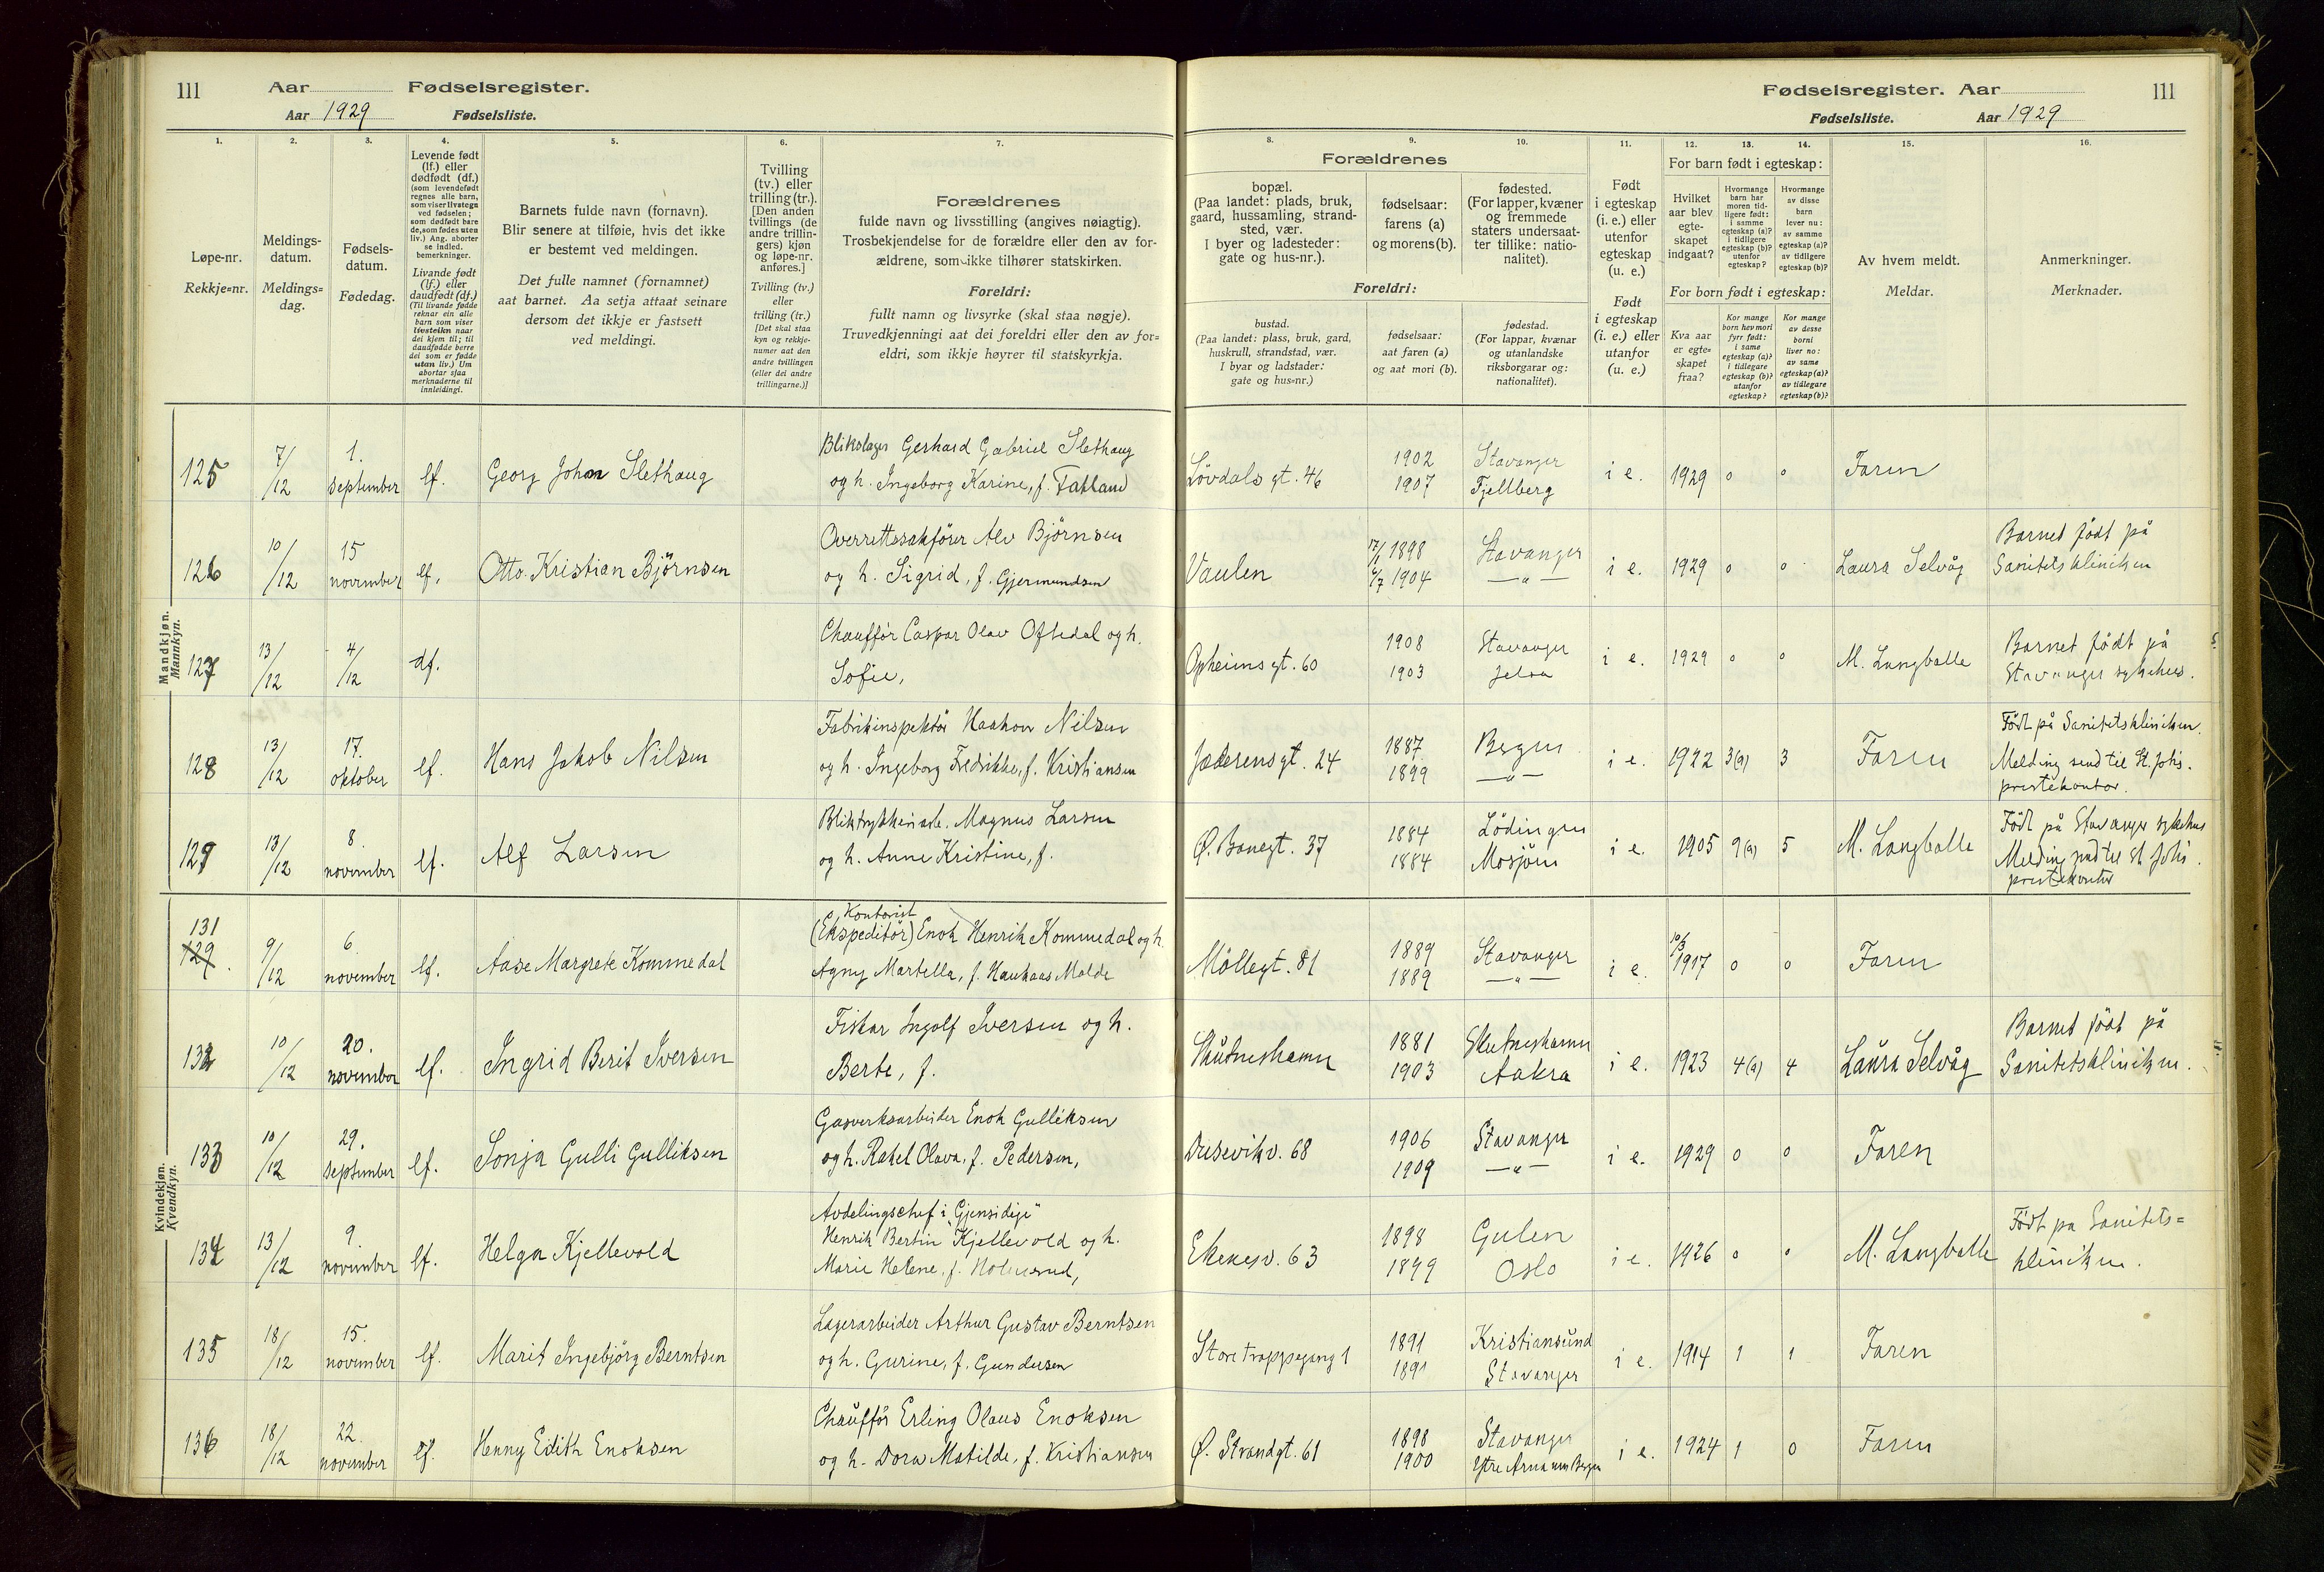 111 Aar Fødselsregister.
Aar 1929 Fødselsliste.
Fødselsregister. Aar 111
Fødselsliste. Aar 1929
1. 2. 3. 4. 5. 6. 7. 8. 9. 10. 11. 12. 13. 14. 15. 16.
Løpe-nr.
Rekkje=nr.
Meldings-
datum.
Meldings=
dag.
Fødsels-
datum.
Fødedag.
Levende født
(lf.) eller
dødfødt (df.)
(som levendefødt
regnes alle barn,
som viser livstegn
ved fødselen;
som dødfødt bare
de, som fødes uten
liv.) Ang. aborter
se indled.
bemerkninger.
Livande født
(lf.) eller
daudfødt (df.)
(Til livande fødde
reknar ein alle
barn som viser
livsteikn naar
dei kjem til; til
daudfødde berre
dei som er fødde
utan liv.) Um
abortar sjaa
merknaderne til
innleidingi.
Barnets fulde navn (fornavn).
Blir senere at tilføie, hvis det ikke
er bestemt ved meldingen.
Det fulle namnet (fornamnet)
aat barnet. Aa setja attaat seinare
dersom det ikkje er fastsett
ved meldingi.
Tvilling
(tv.) eller
trilling (tr.).
[Den anden
tvillings (de
andre trillin-
gers) kjøn
og løpe-nr.
anføres.]
Tvilling (tv.)
eller
trilling (tr.)
[Det skal staa
kyn og rekkje-
numer aat den
andre tvillingen
(eller dei andre
trillingarne.)]
Forældrenes
fulde navn og livsstilling (angives nøiagtig).
Trosbekjendelse for de forældre eller den av for-
ældrene, som ikke tilhører statskirken.
Foreldri:
fullt namn og livsyrke (skal staa nøgje).
Truvedkjenningi aat dei foreldri eller den av for=
eldri, som ikkje høyrer til statskyrkja.
Forældrenes
bopæl.
(Paa landet: plads, bruk,
gaard, hussamling, strand-
sted, vær.
I byer og ladesteder:
gate og hus-nr.).
fødselsaar:
farens (a)
og morens (b).
fødested.
(For lapper, kvæner
og fremmede
staters undersaat-
ter tillike: natio-
nalitet).
Foreldri:
bustad.
(Paa landet: plass, bruk, gard,
huskrull, strandstad, vær.
I byar og ladstader:
gate og hus-nr.)
fødselsaar:
aat faren (a)
og aat mori (b).
fødestad.
(For lappar, kvænar
og utanlandske
riksborgarar og:
nationalitet).
Født
i egteskap
(i. e.) eller
utenfor
egteskap
(u. e.)
Født
i egteskap
(i. e.) eller
utanfor
(u. e.)
For barn født i egteskap:
Hvilket
aar blev
egte-
skapet
indgaat?
Hvormange
barn har
moren tid-
ligere født:
i samme
egteskap (a)?
i tidligere
egteskap (b)?
utenfor
egteskap?
Hvormange
av disse
barn
lever nu:
av samme
egteskap (a)?
av tidligere
egteskap (b)?
For born født i egteskap:
Kva aar
er egte=
skapet
fraa?
Kor mange
born hev mori
fyrr født:
i same
egteskap (a)?
i tidlegare
egteskap (b)?
utanfor
egteskap?
Kor mange
av desse
borni
liver no:
av same
egteskap (a)?
av tidlegare
egteskap (b)?
Av hvem meldt.
Meldar.
Anmerkninger.
Merknader.
Mandkjøn.
Mannkyn.
125 7/12 1. september lf. Georg Johan Slethaug
Blikslager Gerhard Gabriel Slethaug
og h. Ingeborg Karine, f. Tatland
Lövdals gt. 46 1902 1907 Stavanger Fjellberg i e. 1929 0 0 Faren
126 10/12 15 november lf. Otto Kristian Björnsen
Overrettssakförer Alv Björnsen
og h. Sigrid, f. Gjermundsen
Vaulen 1898 1904 Stavanger —"— i e. 1929 0 0 Laura Selvåg
Barnet födt på
Sanitetsklinikken
127 13/12 4/12 df.
Chaufför Caspar Olav Oftedal og h.
Sofie,
Opheims gt. 60 1908 1903 Stavanger Jelsa i e. 1929 0 0 M. Langballe
Barnet födt på
Stavanger sykehus.
128 13/12 17. oktober lf. Hans Jakob Nilsen
Fabrikinspektör Haakon Nilsen
og h. Ingeborg Fredrikke, f. Kristiansen
Jæderens gt. 24 1887 1899 Bergen —"— i e. 1922 3(a) 3 Faren
Födt på Sanitetsklinikken.
Melding send til St. Johs.
prestekontor.
129 13/12 8. november lf. Alf Larsen
Bliktrykkeriarb. Magnus Larsen
og h. Anne Kristine, f.
Ø. Banegt. 37 1884 1884 Lödingen Mosjöen i e. 1905 9(a) 5 M. Langballe
Födt på Stavanger sykehus
Melding send til St Johs.
prestekontor
Kvindekjøn.
Kvendkyn.
131
129. 9/12 6. november lf. Aase Margrete Kommedal
Kontorist
(Ekspeditör) Enok Henrik Kommedal og h.
Agny Martella, f. Haukaas Molde
Möllegt. 81 1889 1889 Stavanger —"— i e. 10/3 1917 0 0 Faren
132 10/12 20. november lf. Ingrid Berit Iversen
Fisker Ingolf Iversen og h.
Berte, f.
Skutneshamn 1881 1903 Skutneshamn Aakra i e. 1923 4(a) 4 Laura Selvåg
Barnet födt på
Sanitetsklinikken.
133 10/12 29. september lf. Sonja Gulli Gulliksen
Gasverksarbeider Enok Gulliksen
og h. Rakel Olava, f. Pedersen,
Dusevikv. 68 1906 1909 Stavanger —"— i e. 1929 0 0 Faren
134 13/12 9. november lf. Helga Kjellevold
Avdelingschef i "Gjensidige"
Henrik Bertin Kjellevold og h.
Marie Helene, f.
Ekenesv. 63 1898 1899 Gulen Oslo i e. 1926 0 0 M. Langballe
Födt på Sanitets=
klinikken.
135 18/12 15. november lf. Marit Ingebjörg Berntsen
Lagerarbeider Arthur Gustav Berntsen
og h. Gurine, f. Gundersen
Store trappegang 1 1891 1891 Kristiansund Stavanger i e. 1914 1 1 Faren
136 18/12 22. november lf. Henny Edith Enoksen
Chaufför Erling Olaus Enoksen
og h. Dora Matilde, f. Kristiansen
Ø. Strandgt. 61 1898 1900 Stavanger Ytre Arna Bergen i e. 1924 1 0 Faren